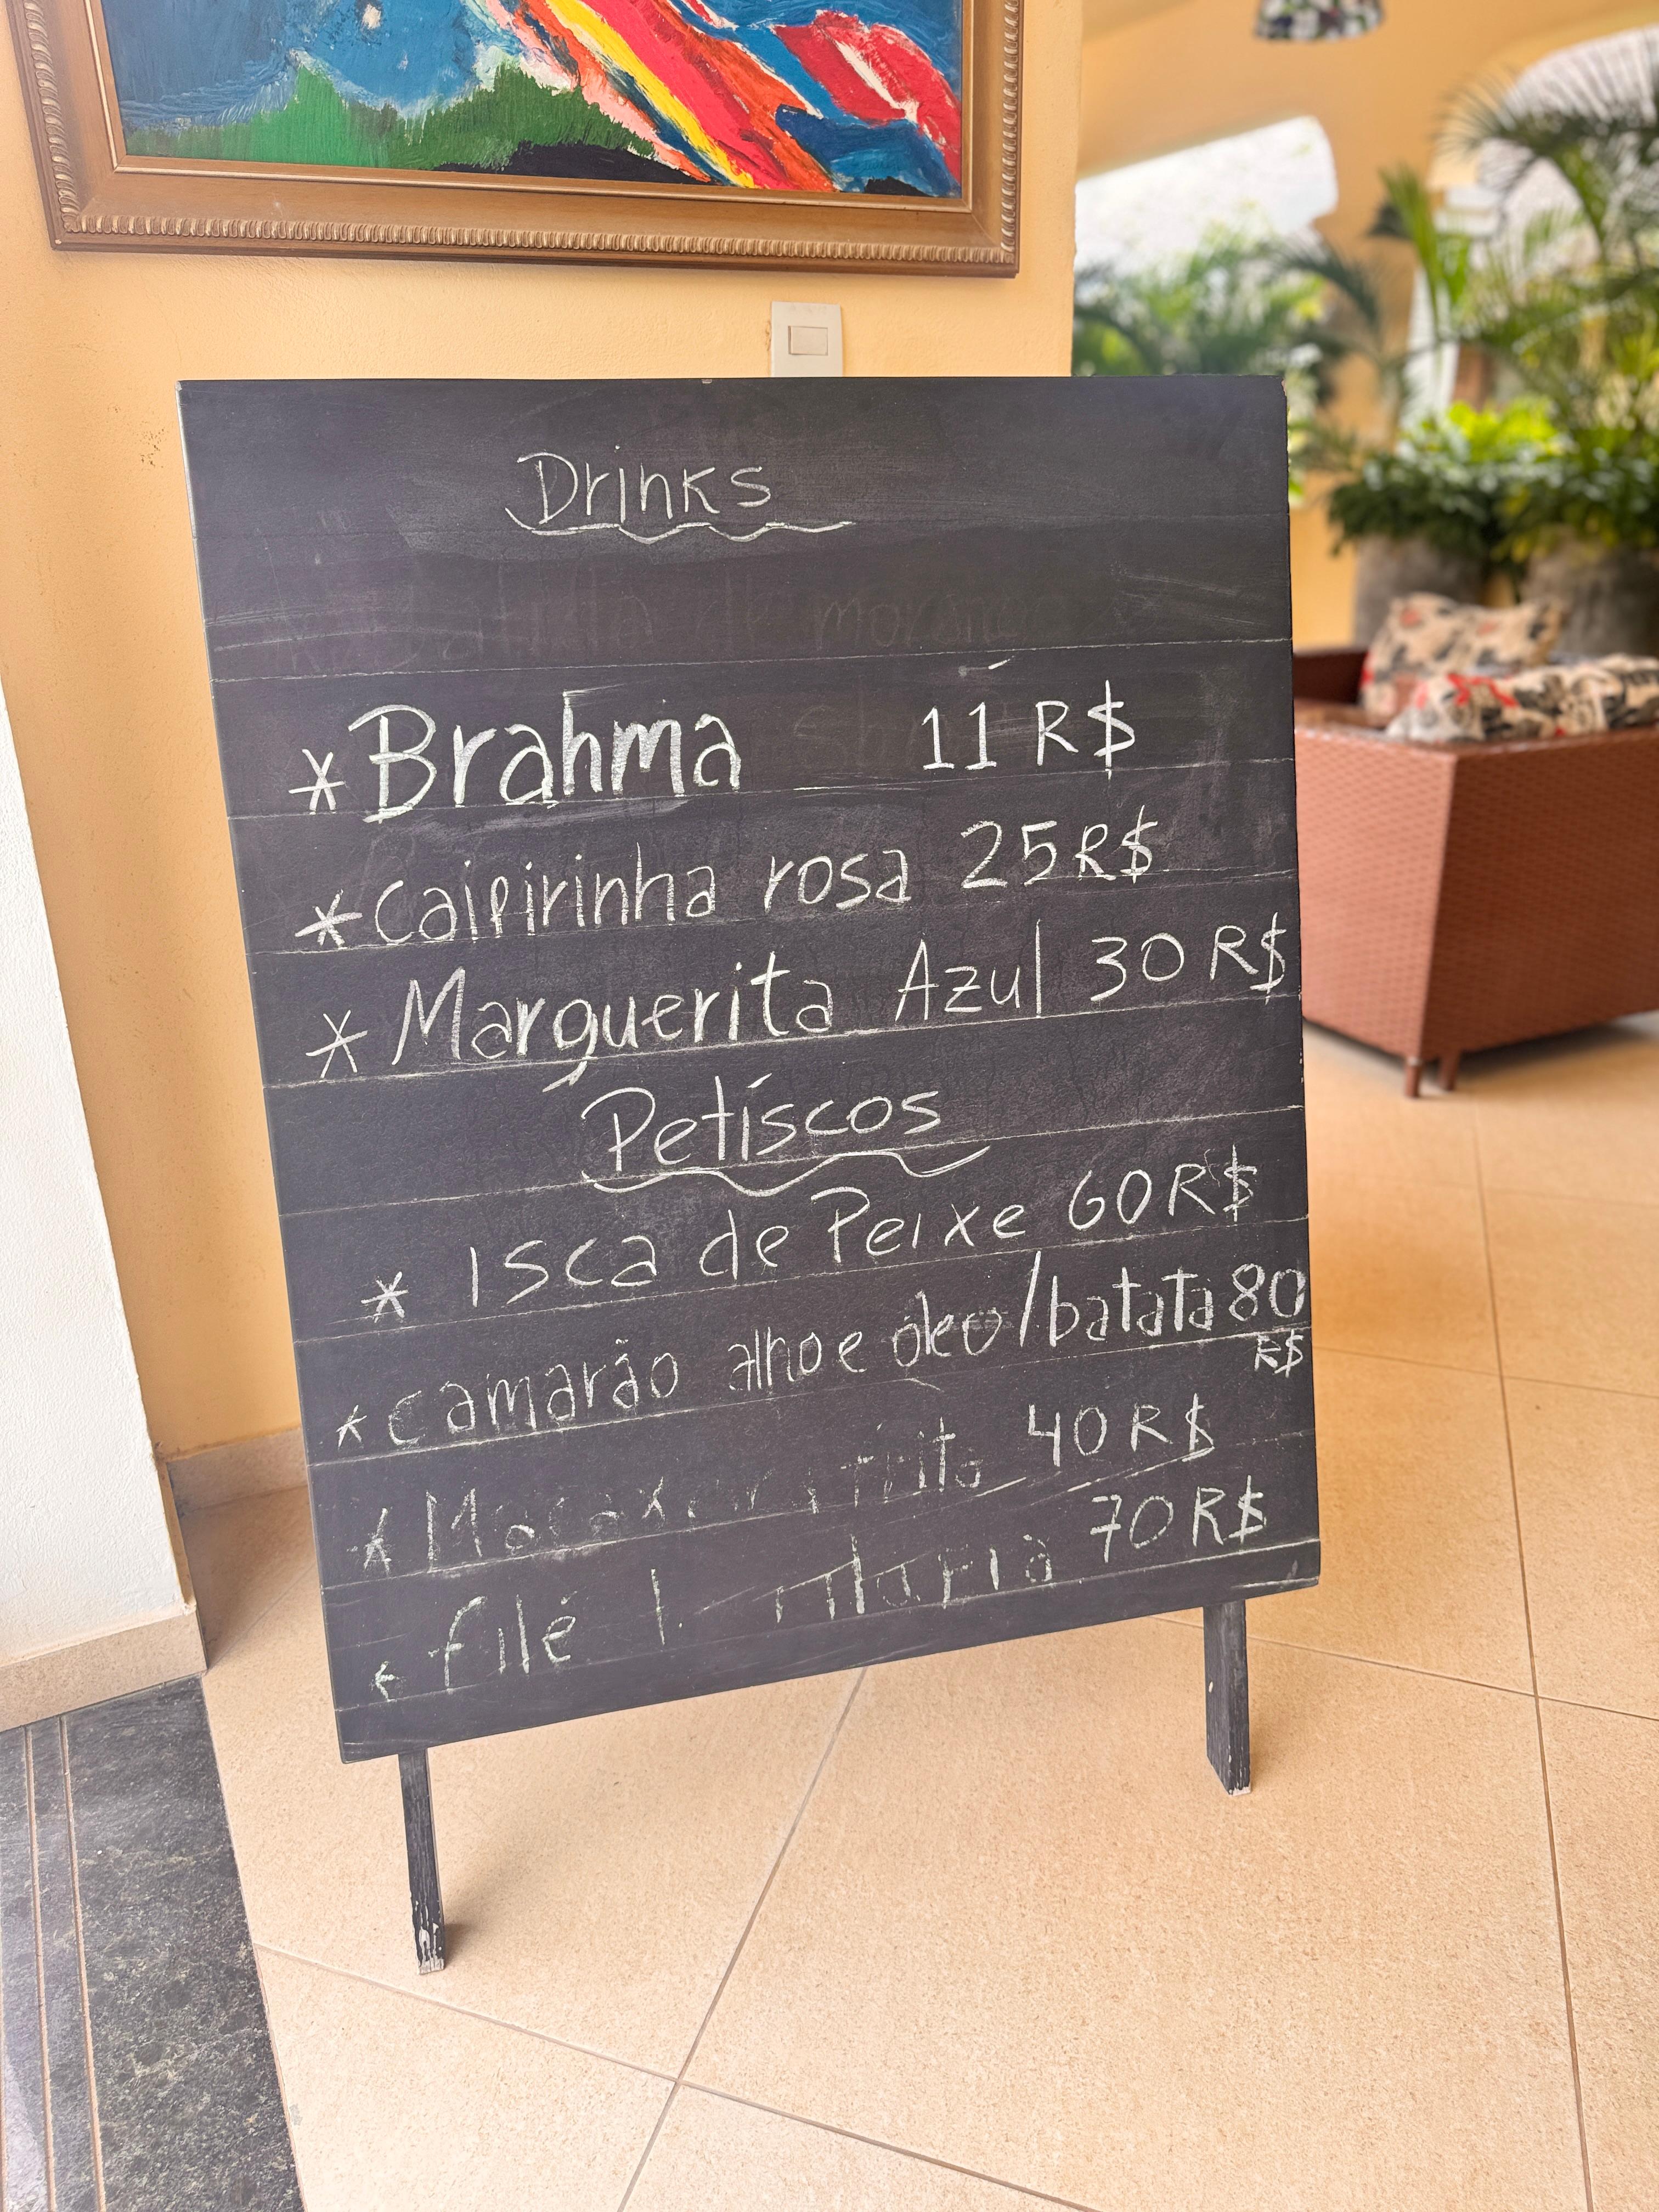 Drinks
* Brahma 11 R$
* Caipirinha rosa 25 R$
* Marguerita Azul 30 R$
Petiscos
* Isca de Peixe 60 R$
* camarão alho e óleo/batata 80
R$
* Macaxeira frita 40 R$
* filé 70 R$